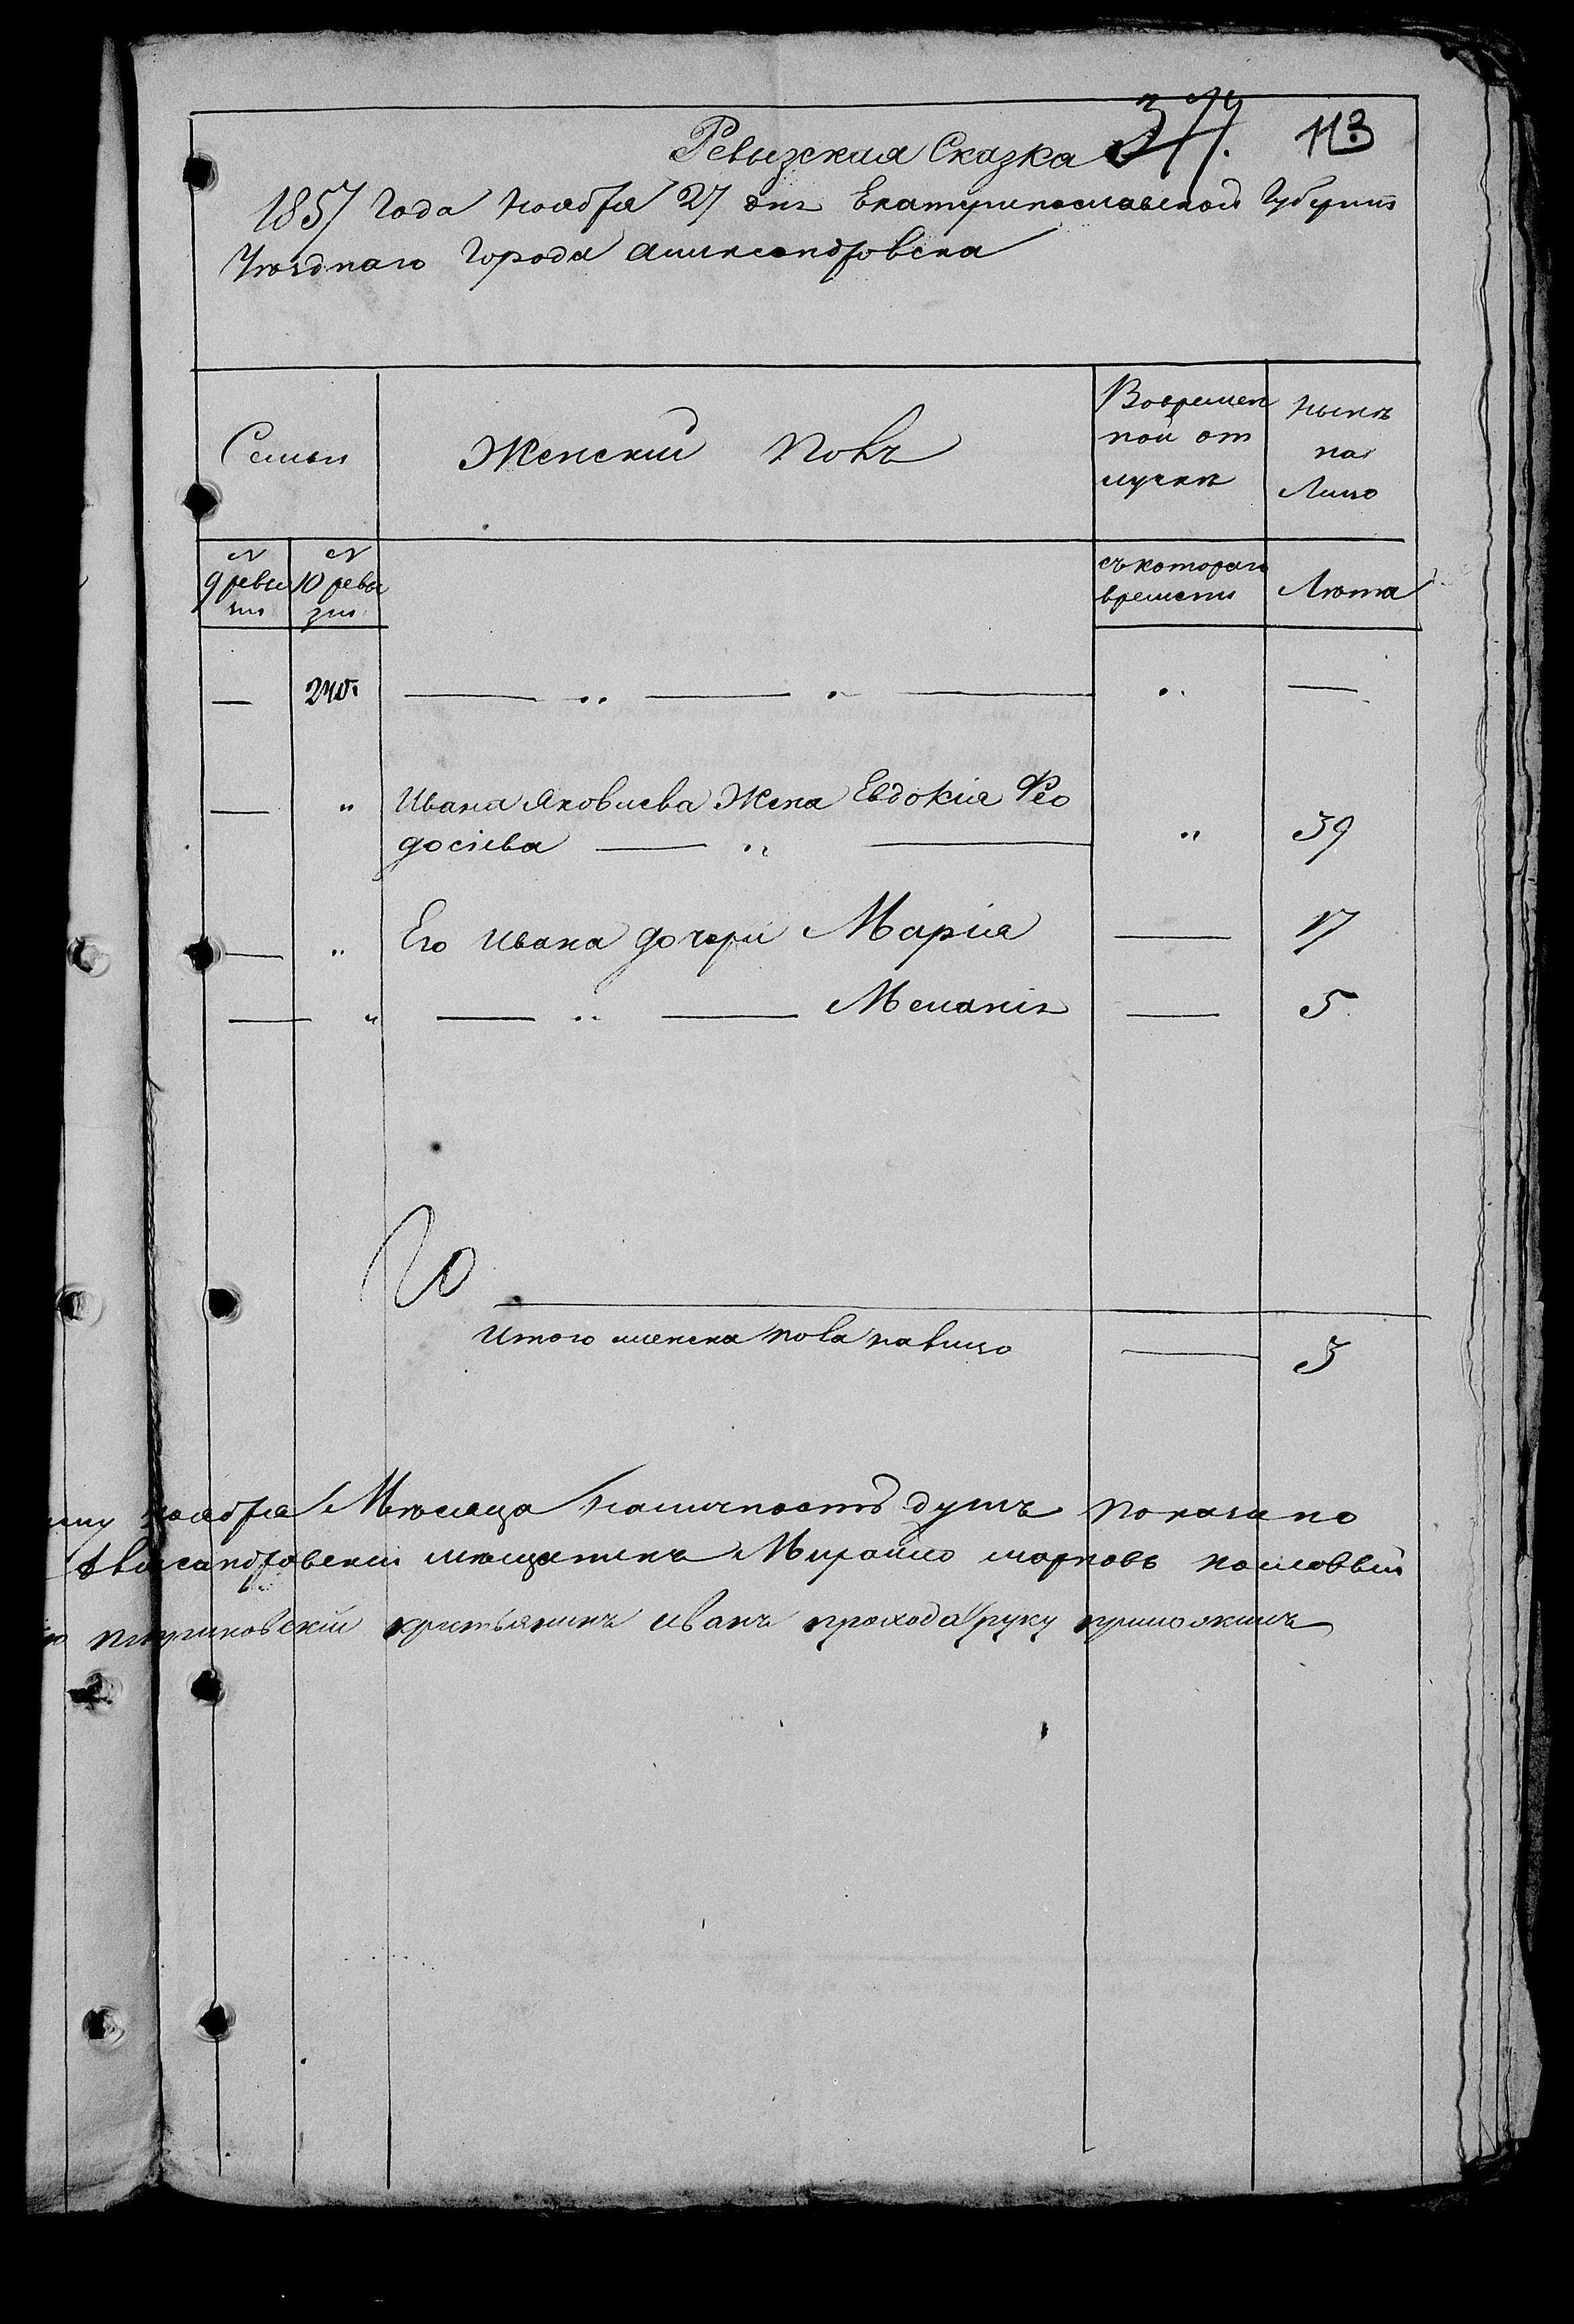 Ревызская Сказка 377. 113
1857 Года Ноабра 27 дня Екатеринославской Губерніи
Уѣзднаго Города Александровска
Семьи
Женский Полъ
Вовремен
ной от
лучкѣ
нынѣ
на
Лицо
№
9 ревы
зіи
№
10 ревы
зіи
съкотораго
времени
Лѣта
— 240. — „ — „ — „ —
— „ Ивана Яковлева Жена Евдокія Фео
досіева — „ — „ 39
— „ Его Ивана дочери Марія — 17
— „ — „ — Меланія — 5
Итого женска пола налицо — 3
ноабра Мѣсяца наличность душъ показано
Александровски мѣщанинъ Михайло марковъ
крестьянинъ Иванъ прохода руку приложилъ